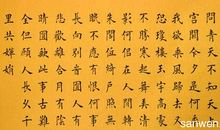 問青天不知天上
宮闕今夕是何年
我欲乘風歸去又
恐瓊樓玉宇高處
不勝寒起舞弄清
影何似在人間轉
朱閣低綺戶照無
眠不應有恨何事
長向別時圓人有
悲歡離合月有陰
晴圓缺此事古難
全但願人長久千
里共嬋娟
sanwen